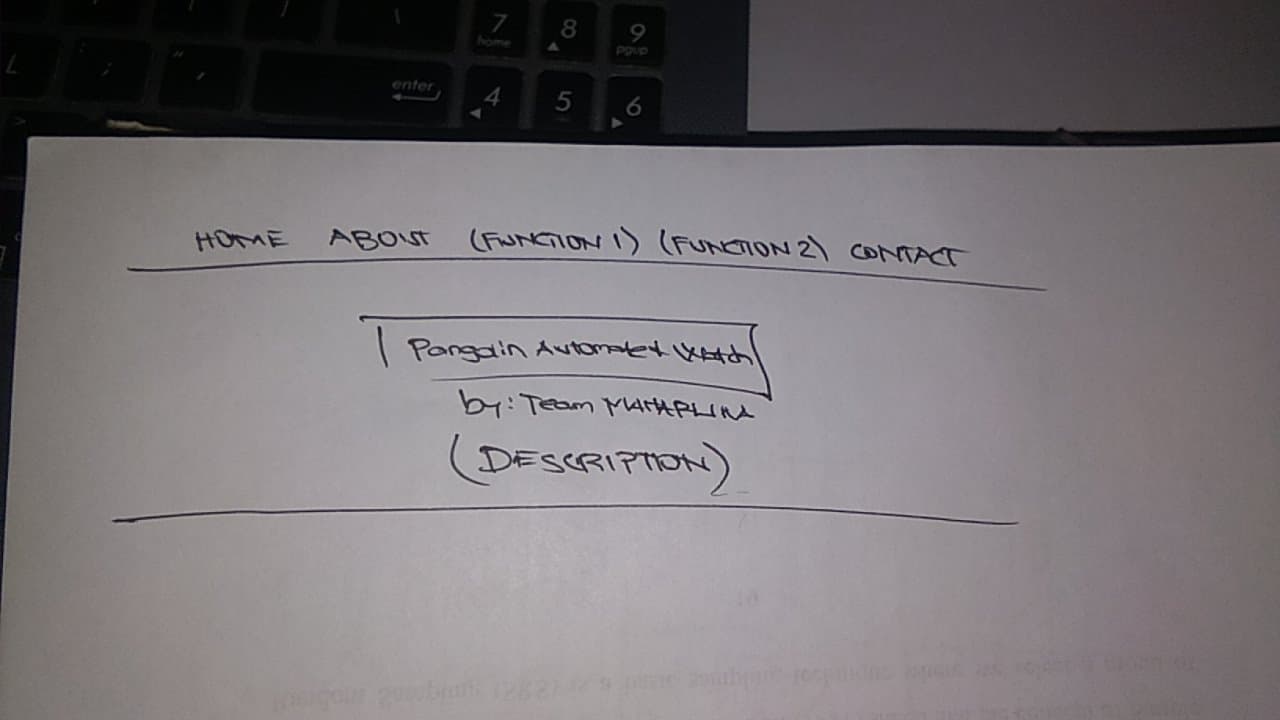 7 8 9
home pgup
enter 4 5 6
HOME ABOUT (FUNCTION 1) (FUNCTION 2) CONTACT
Pangolin Automated Watch
by: Team
(DESCRIPTION)